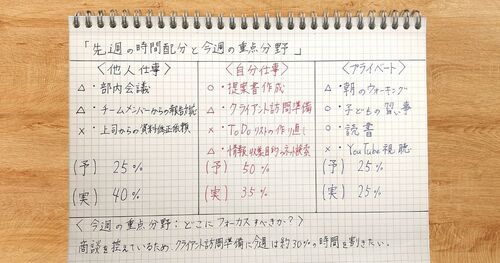 「先週の時間配分と今週の重点分野」
<他人仕事>
△・部内会議
△・チームメンバーからの報告対応
×・上司からの資料修正依頼
(予) 25%
(実) 40%
<自分仕事>
○・提案書作成
△・クライアント訪問準備
×・ToDoリストの作り直し
△・情報収集目的のネット検索
(予) 50%
(実) 35%
<プライベート>
△・朝のウォーキング
○・子どもの習い事
○・読書
×・YouTube視聴
(予) 25%
(実) 25%
<今週の重点分野:どこにフォーカスすべきか?>
商談を控えているため、クライアント訪問準備に今週は約30%の時間を割きたい。